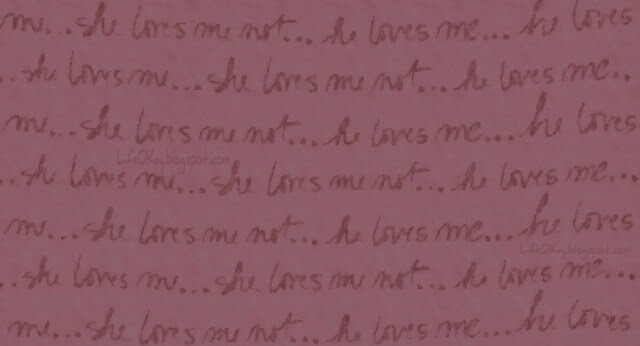 me...she loves me not...he loves me...he loves
..she loves me...she loves me not...he loves me..
me...she loves me not...he loves me...he loves
LifeOKay.blogspot.com
..she loves me...she loves me not...he loves me...
me...she loves me not...he loves me...he loves
LifeOKay.blogspot.com
..she loves me...she loves me not...he loves me...
me...she loves me not...he loves me...he loves.